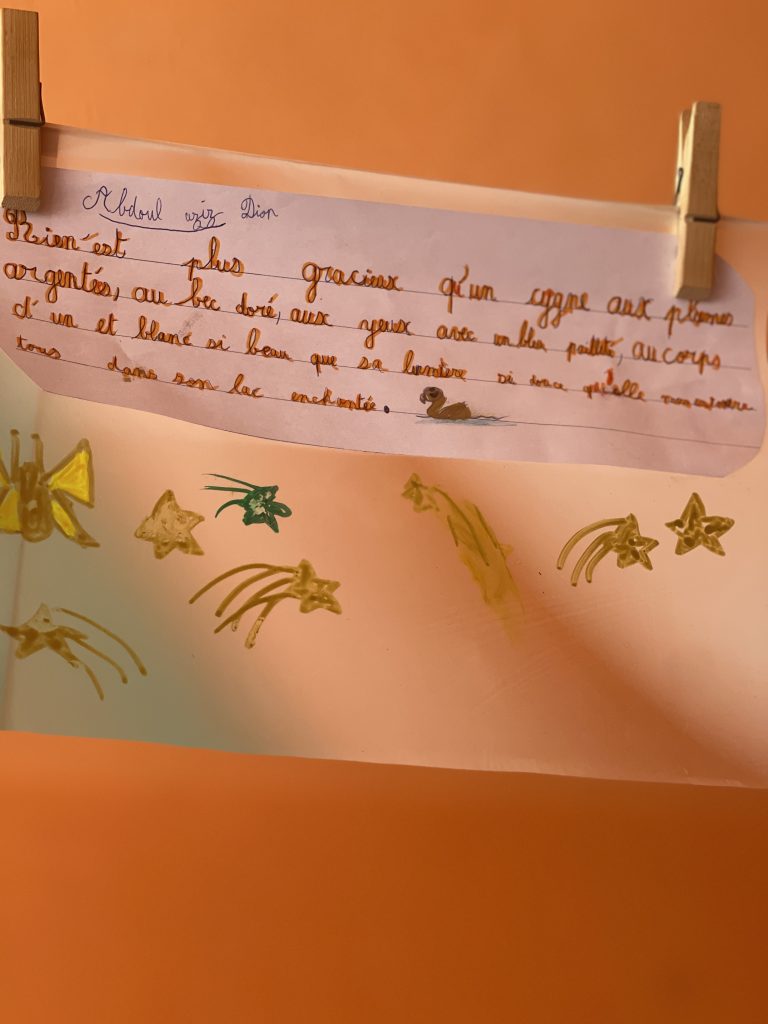 Abdoul aziz Dion
Rien'est plus gracieux qu'un cygne aux plumes
argentés, au bec doré, aux yeux avec un bleu pailleté, au corps
d'un et blanc si beau que sa lumière si douce qu'elle
tous dans son lac enchantée.